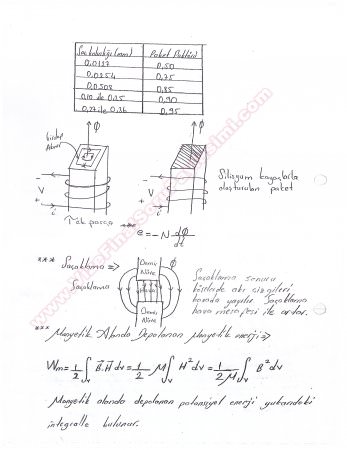 Sac kalınlığı (mm) Paket Faktörü
0,0127 0,50
0,0254 0,75
0,0508 0,85
0,10 ile 0,25 0,90
0,27 ile 0,36 0,95
Φ Φ
Girdap
Akımı
+ i + i
V V
- i - i
Silisyum kayaçlarla
oluşturulan paket
Tek parça
e = -N dΦ/dt
*** Saçaklama =>
Demir
Nüve
Saçaklama
Demir
Nüve
Saçaklama sonucu
köşelerde akı çizgileri
burada yayılır. Saçaklama
hava mesafesi ile artar.
*** Manyetik Alanda Depolanan Manyetik enerji =>
Wm = 1/2 ∫v B.H dv = 1/2 μ ∫v H² dv = 1/2μ ∫v B² dv
Manyetik alanda depolanan potansiyel enerji yukarıdaki
integralle bulunur.